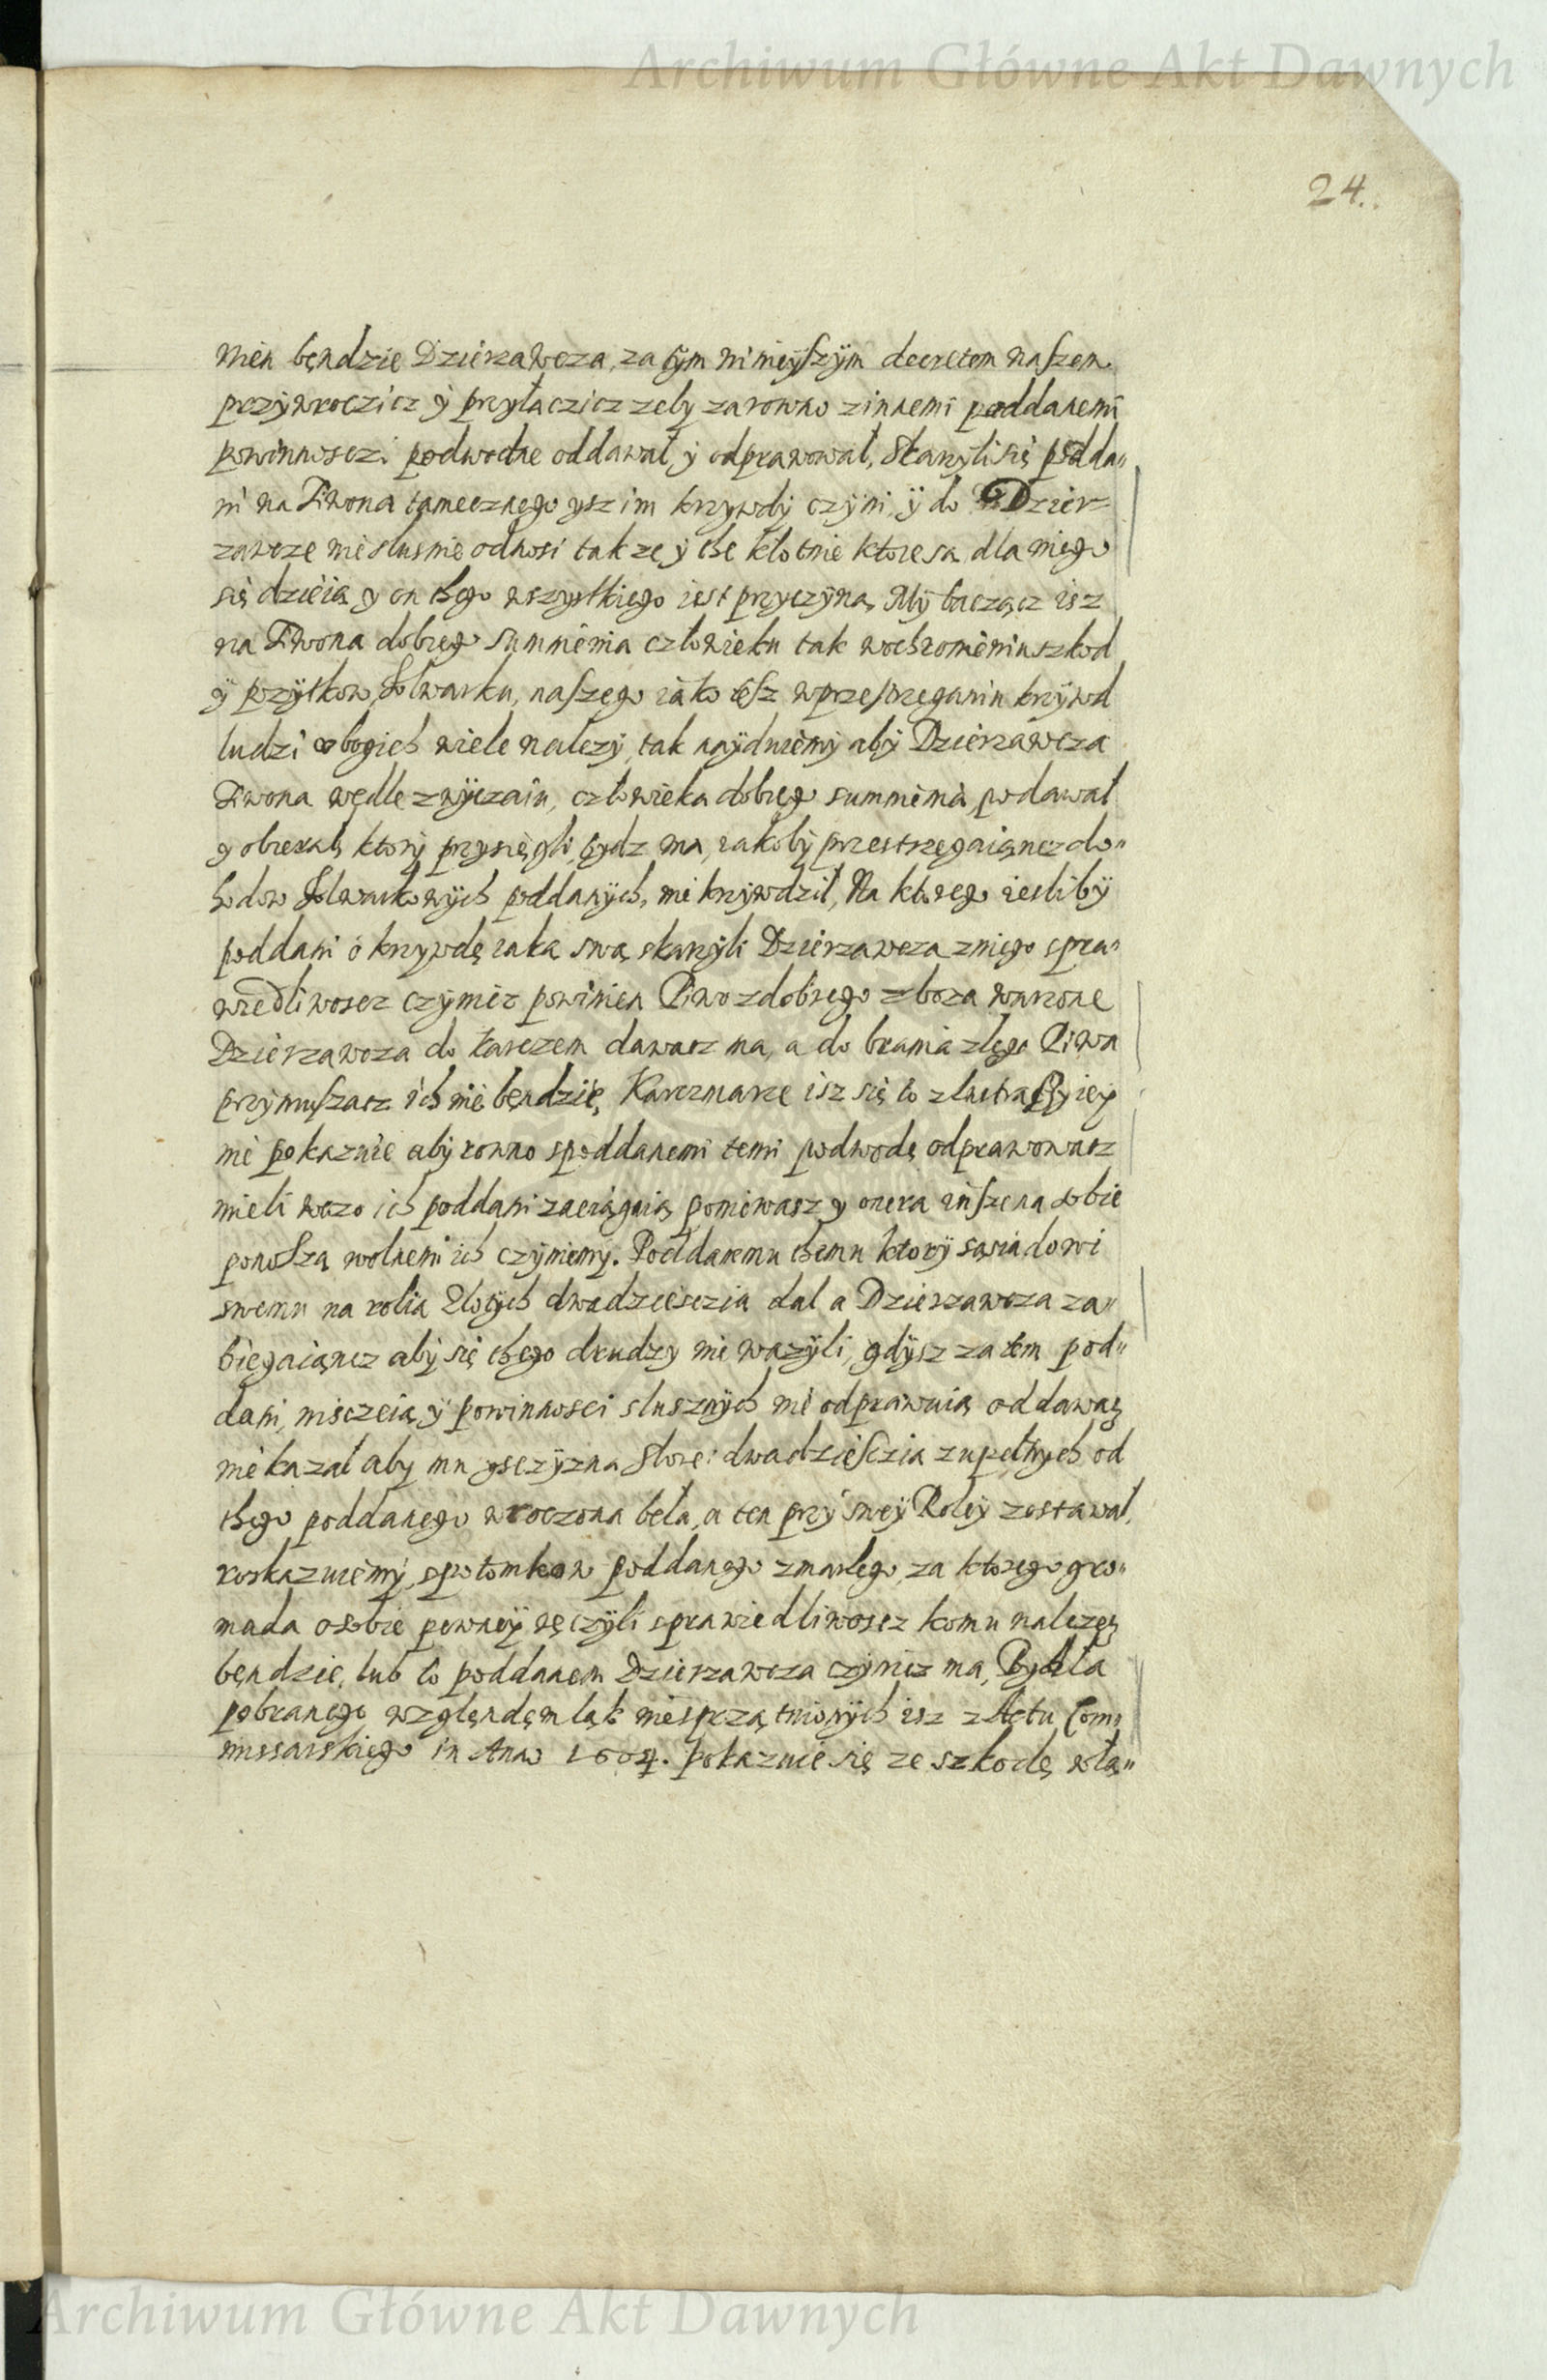 Archiwum Główne Akt Dawnych
24.
nien będzie Dzierzawcza, za tym ninieyszym decretem naszem
przywroczicz y przyłaczicz zeby zarowno z innemi poddanemi
powinnosczi podwodne oddawał, y odprawował, Skarzyli się podda„
ni na Ziwona tamecznego ysz im krzywdy czyni, ÿ do Dzier„
zawcze niesłusnie odnosi takze y the kłotnie ktore sa dla niego
się dzieią y on thego wszystkiego iest przyczyną, My bacząc isz
na Ziwona dobrego sumnienia człowieku tak wochronieniu szkod
ÿ pozytkow folwarku, naszego iako tesz w przestrzeganiu krzywd
ludzi vbogich wiele nalezy, tak nayduiemy aby Dzierzawcza
Ziwona wedle zwyczaiu, człowieka dobrego sumnienia podawał
y obierał, ktory przysięgli bydz ma, iakoby przestrzegaiącz do„
hodow folwarkowych poddanych, nie krzywdził, Na ktorego iesliby
poddani o krzywdę iaka swą skarzyli Dzierzawcza z niego spra„
wiedliwoscz czynicz powinien Piwo z dobrego zboza warzone
Dzierzawcza do karczem dawacz ma, a do brania złego Piwa
przymuszacz ich nie będzie, Karczmarze isz się to z lustracyiey
nie pokazuie aby rowno spoddanemi temi podwodę odprawowacz
mieli wczo ich poddani zaciągaią poniewasz y onera insze na sobie
ponoszą wolnemi ich czyniemy. Poddanemu themu ktory sąsiadowi
swemu na rolia Złotych dwadziesczia dał a Dzierzawcza za„
biegaiącz aby się thego drudzy nie wazÿli, gdysz za tem pod„
dani, nisczeią y powinnosci slusznych nie odprawuią oddawac
nie kazał aby mu ysczyzna złote: dwadziesczia zupełnych od
thego poddanego wroczona beła, a ten przy swey Roley zostawał,
roskazuiemy, spotomkow poddanego zmarłego, za ktorego gro„
mada osobie pewney ręczyli sprawiedliwoscz komu nalezec
będzie, lub to poddanem Dzierzawcza czynicz ma, Bydła
pobranego względem łąk niesprzątnionych isz z Actu Com„
missarskiego in Anno 1604. pokazuie się ze szkodę wła„
Archiwum Główne Akt Dawnych